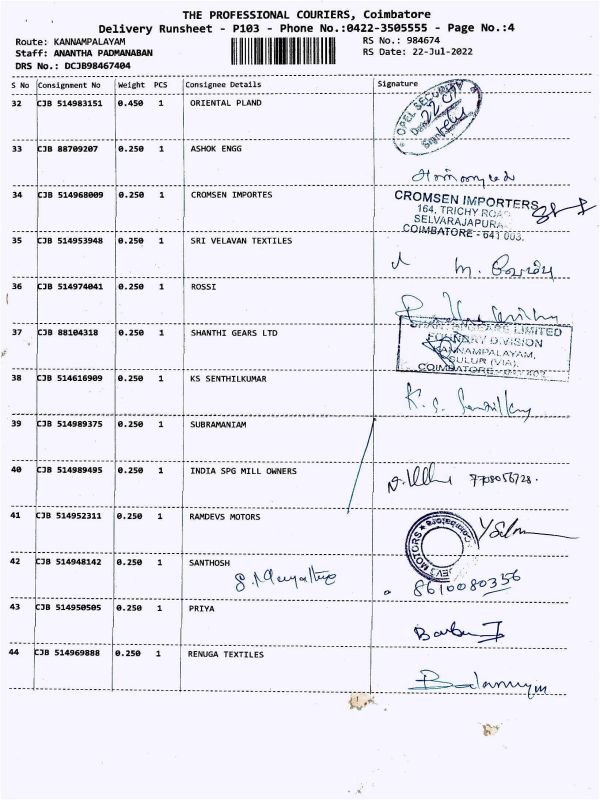 THE PROFESSIONAL COURIERS, Coimbatore
Delivery Runsheet - P103 - Phone No.:0422-3505555 - Page No.:4
Route: KANNAMPALAYAM RS No.: 984674
Staff: ANANTHA PADMANABAN RS Date: 22-Jul-2022
DRS No.: DCJB98467404
S No Consignment No Weight PCS Consignee Details Signature
32 CJB 514983151 0.450 1 ORIENTAL PLAND
OPEL SECURITY
33 CJB 88709207 0.250 1 ASHOK ENGG
34 CJB 514968009 0.250 1 CROMSEN IMPORTES
CROMSEN IMPORTERS
164, TRICHY ROAD
SELVARAJAPURAM
COIMBATORE - 641 003.
35 CJB 514953948 0.250 1 SRI VELAVAN TEXTILES
36 CJB 514974041 0.250 1 ROSSI
37 CJB 88104318 0.250 1 SHANTHI GEARS LTD
SHANTHI GEARS LIMITED
FOUNDRY DIVISION
KANNAMPALAYAM,
SULUR (VIA),
COIMBATORE
38 CJB 514616909 0.250 1 KS SENTHILKUMAR
39 CJB 514989375 0.250 1 SUBRAMANIAM
40 CJB 514989495 0.250 1 INDIA SPG MILL OWNERS
41 CJB 514952311 0.250 1 RAMDEVS MOTORS
MOTORS ★ Coimbatore
42 CJB 514948142 0.250 1 SANTHOSH
8610080356
43 CJB 514950505 0.250 1 PRIYA
44 CJB 514969888 0.250 1 RENUGA TEXTILES